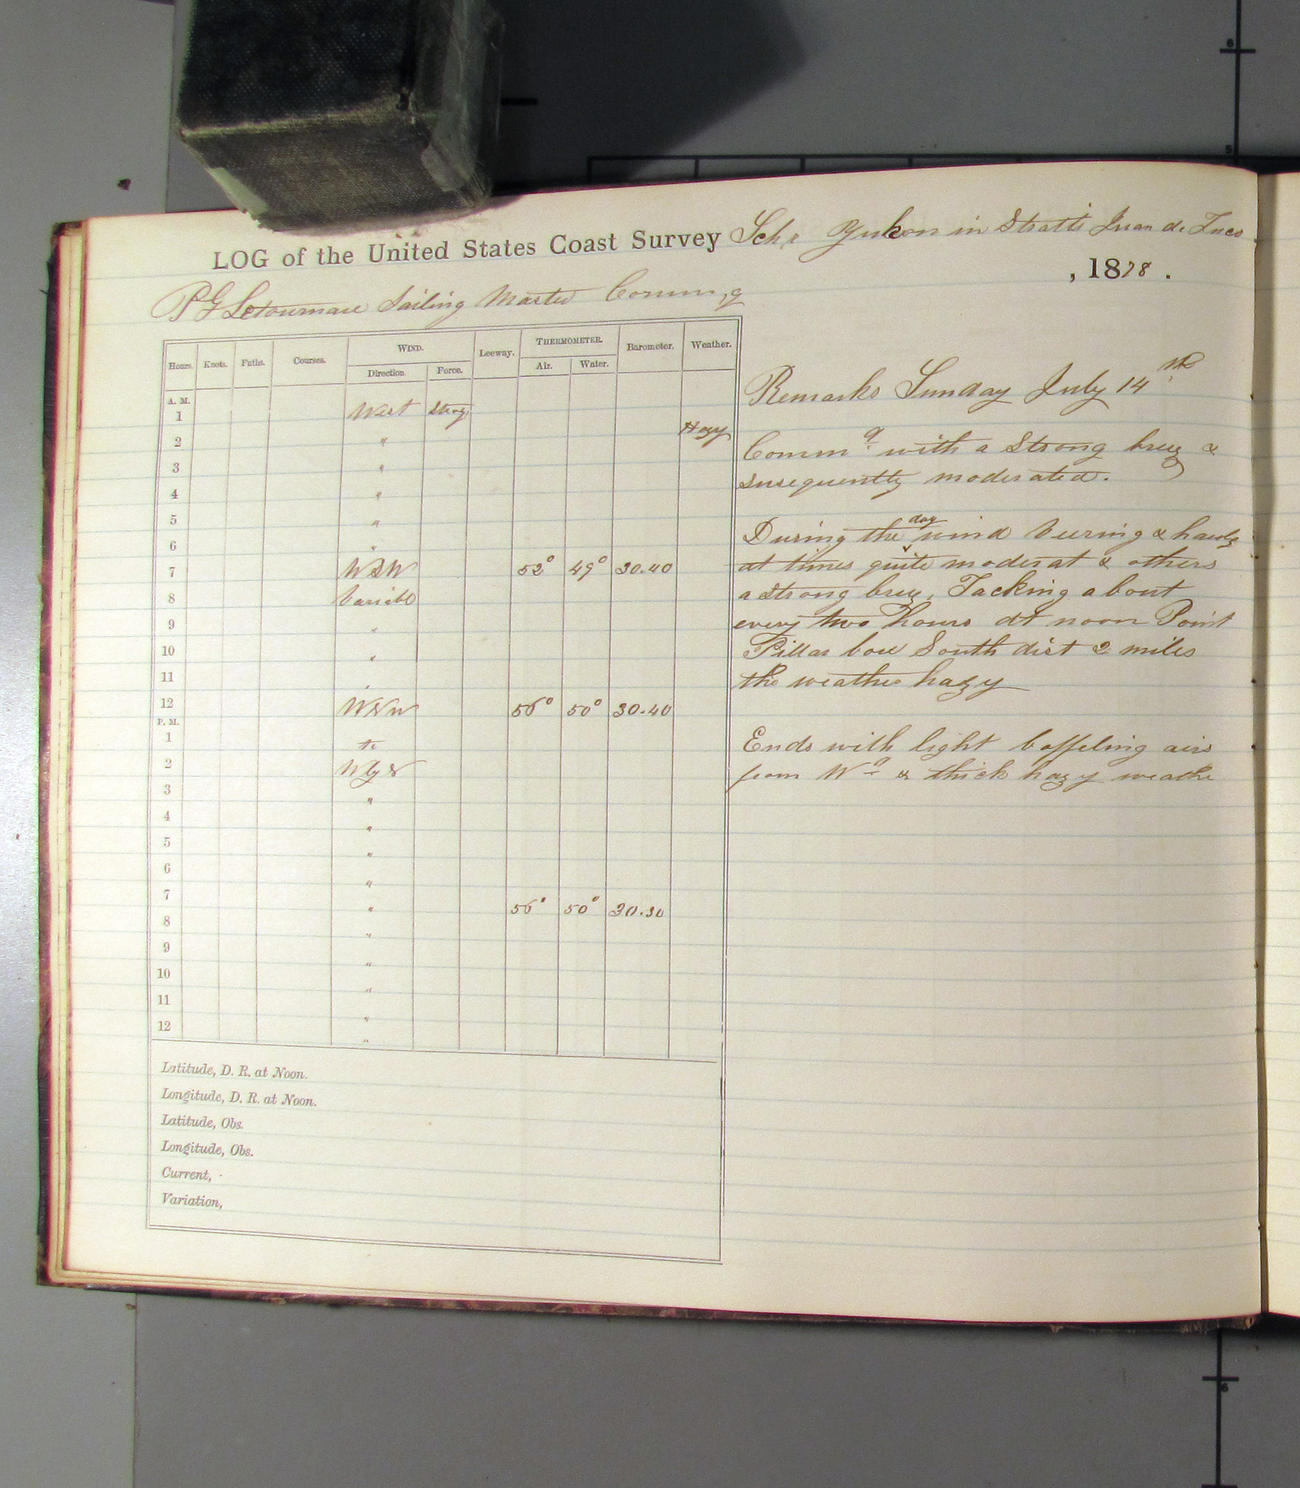 LOG of the United States Coast Survey Schr Yukon in Stratts Juan de Fuca
, 1878 .
P G Letournau Sailing Master Comm,g
Hours. Knots. Faths. Courses. WIND. Leeway. THERMOMETER. Barometer. Weather.
Direction. Force. Air. Water.
A. M.
1 West Strog
2 " Hazy
3 "
4 "
5 "
6 "
7 WSW 52° 49° 30.40
8 Variabl
9 "
10 "
11 "
12 WNW 56° 50° 30.40
P. M.
1 to
2 WbyN
3 "
4 "
5 "
6 "
7 " 56° 50° 30.30
8 "
9 "
10 "
11 "
12 "
Latitude, D. R. at Noon.
Longitude, D. R. at Noon.
Latitude, Obs.
Longitude, Obs.
Current,
Variation,
Remarks Sunday July 14th
Commg with a Strong breez &
susequently moderated.
During the day wind Veering & haulg
at times quite moderat & others
a strong breez, Tacking about
every two hours at noon Point
Pillar bore South dist 2 miles
the weather hazy
Ends with light baffeling airs
from Wd & thick hazy weathe